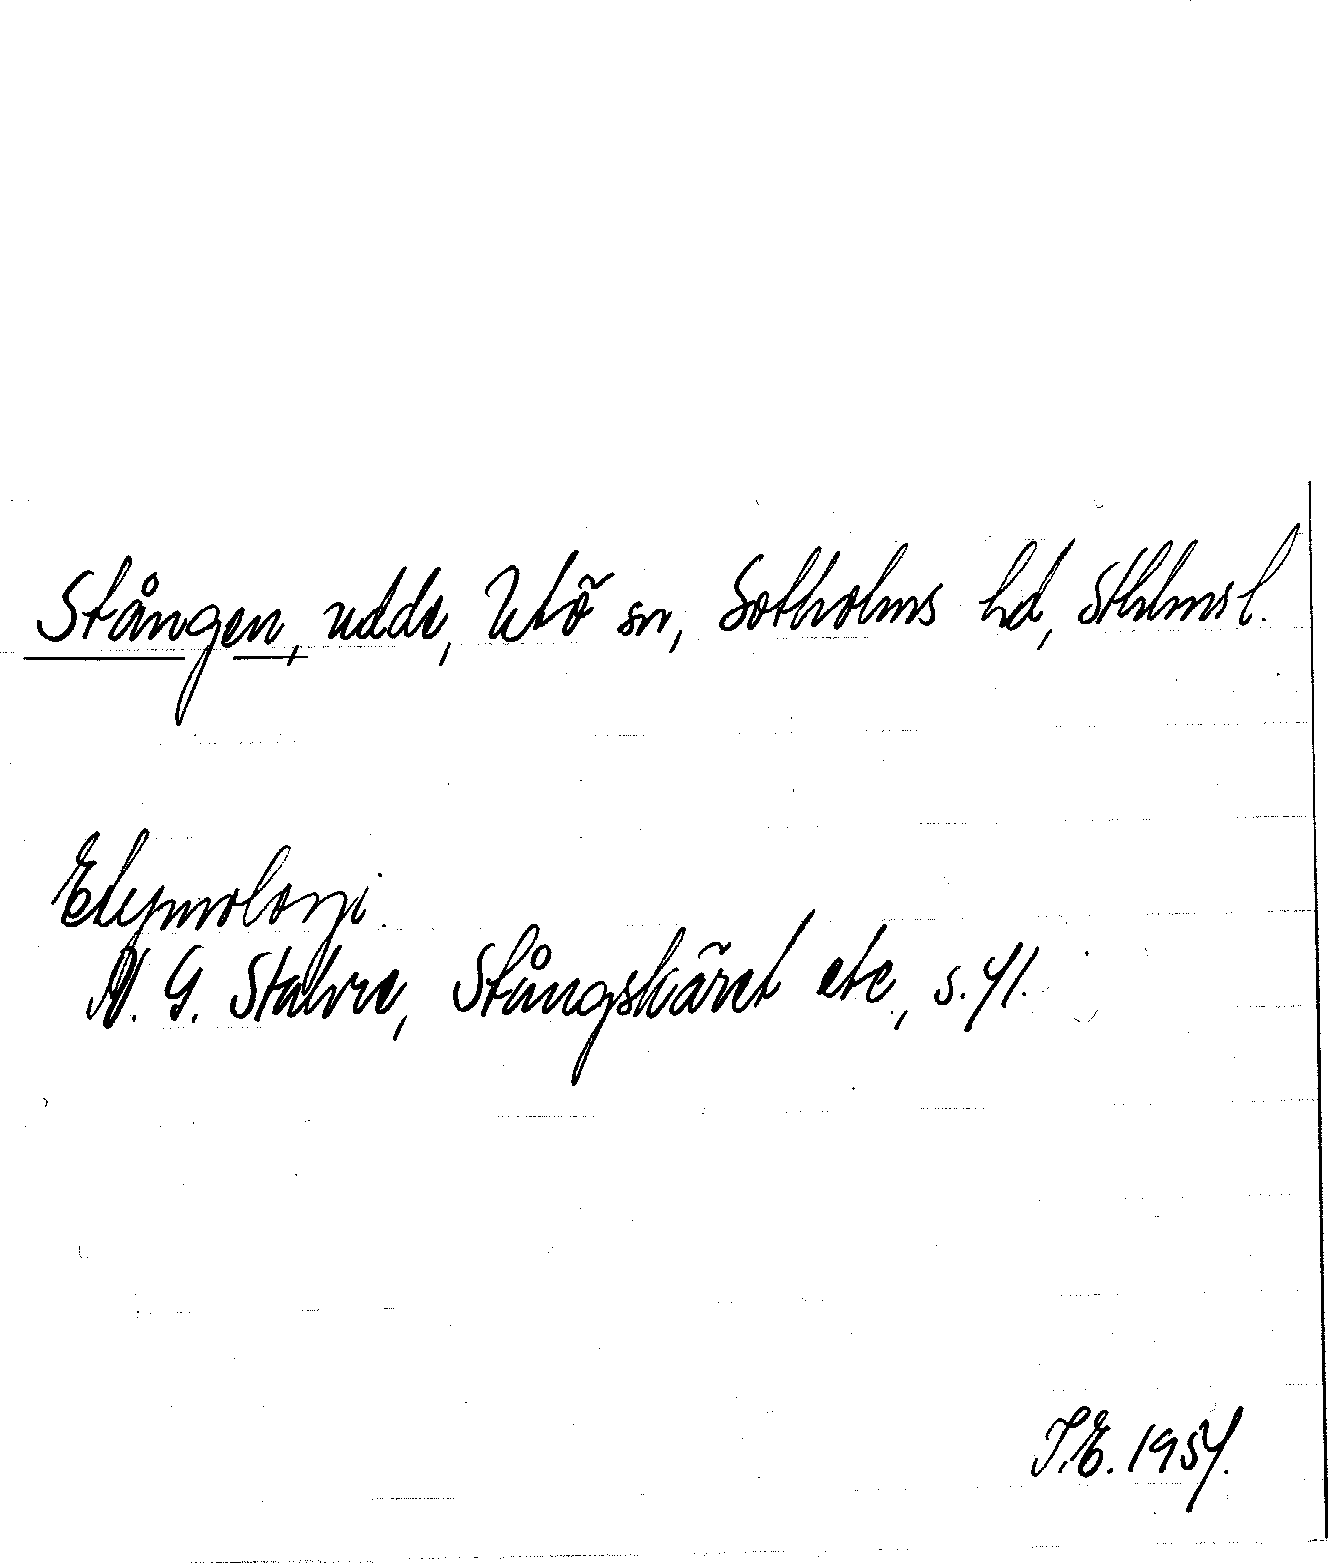 Stången, udde, Utö sn, Sotholms hd, Sthlms l.
Etymologi.
N. G. Stahre, Stångskäret etc, s. 41.
I.E. 1954.